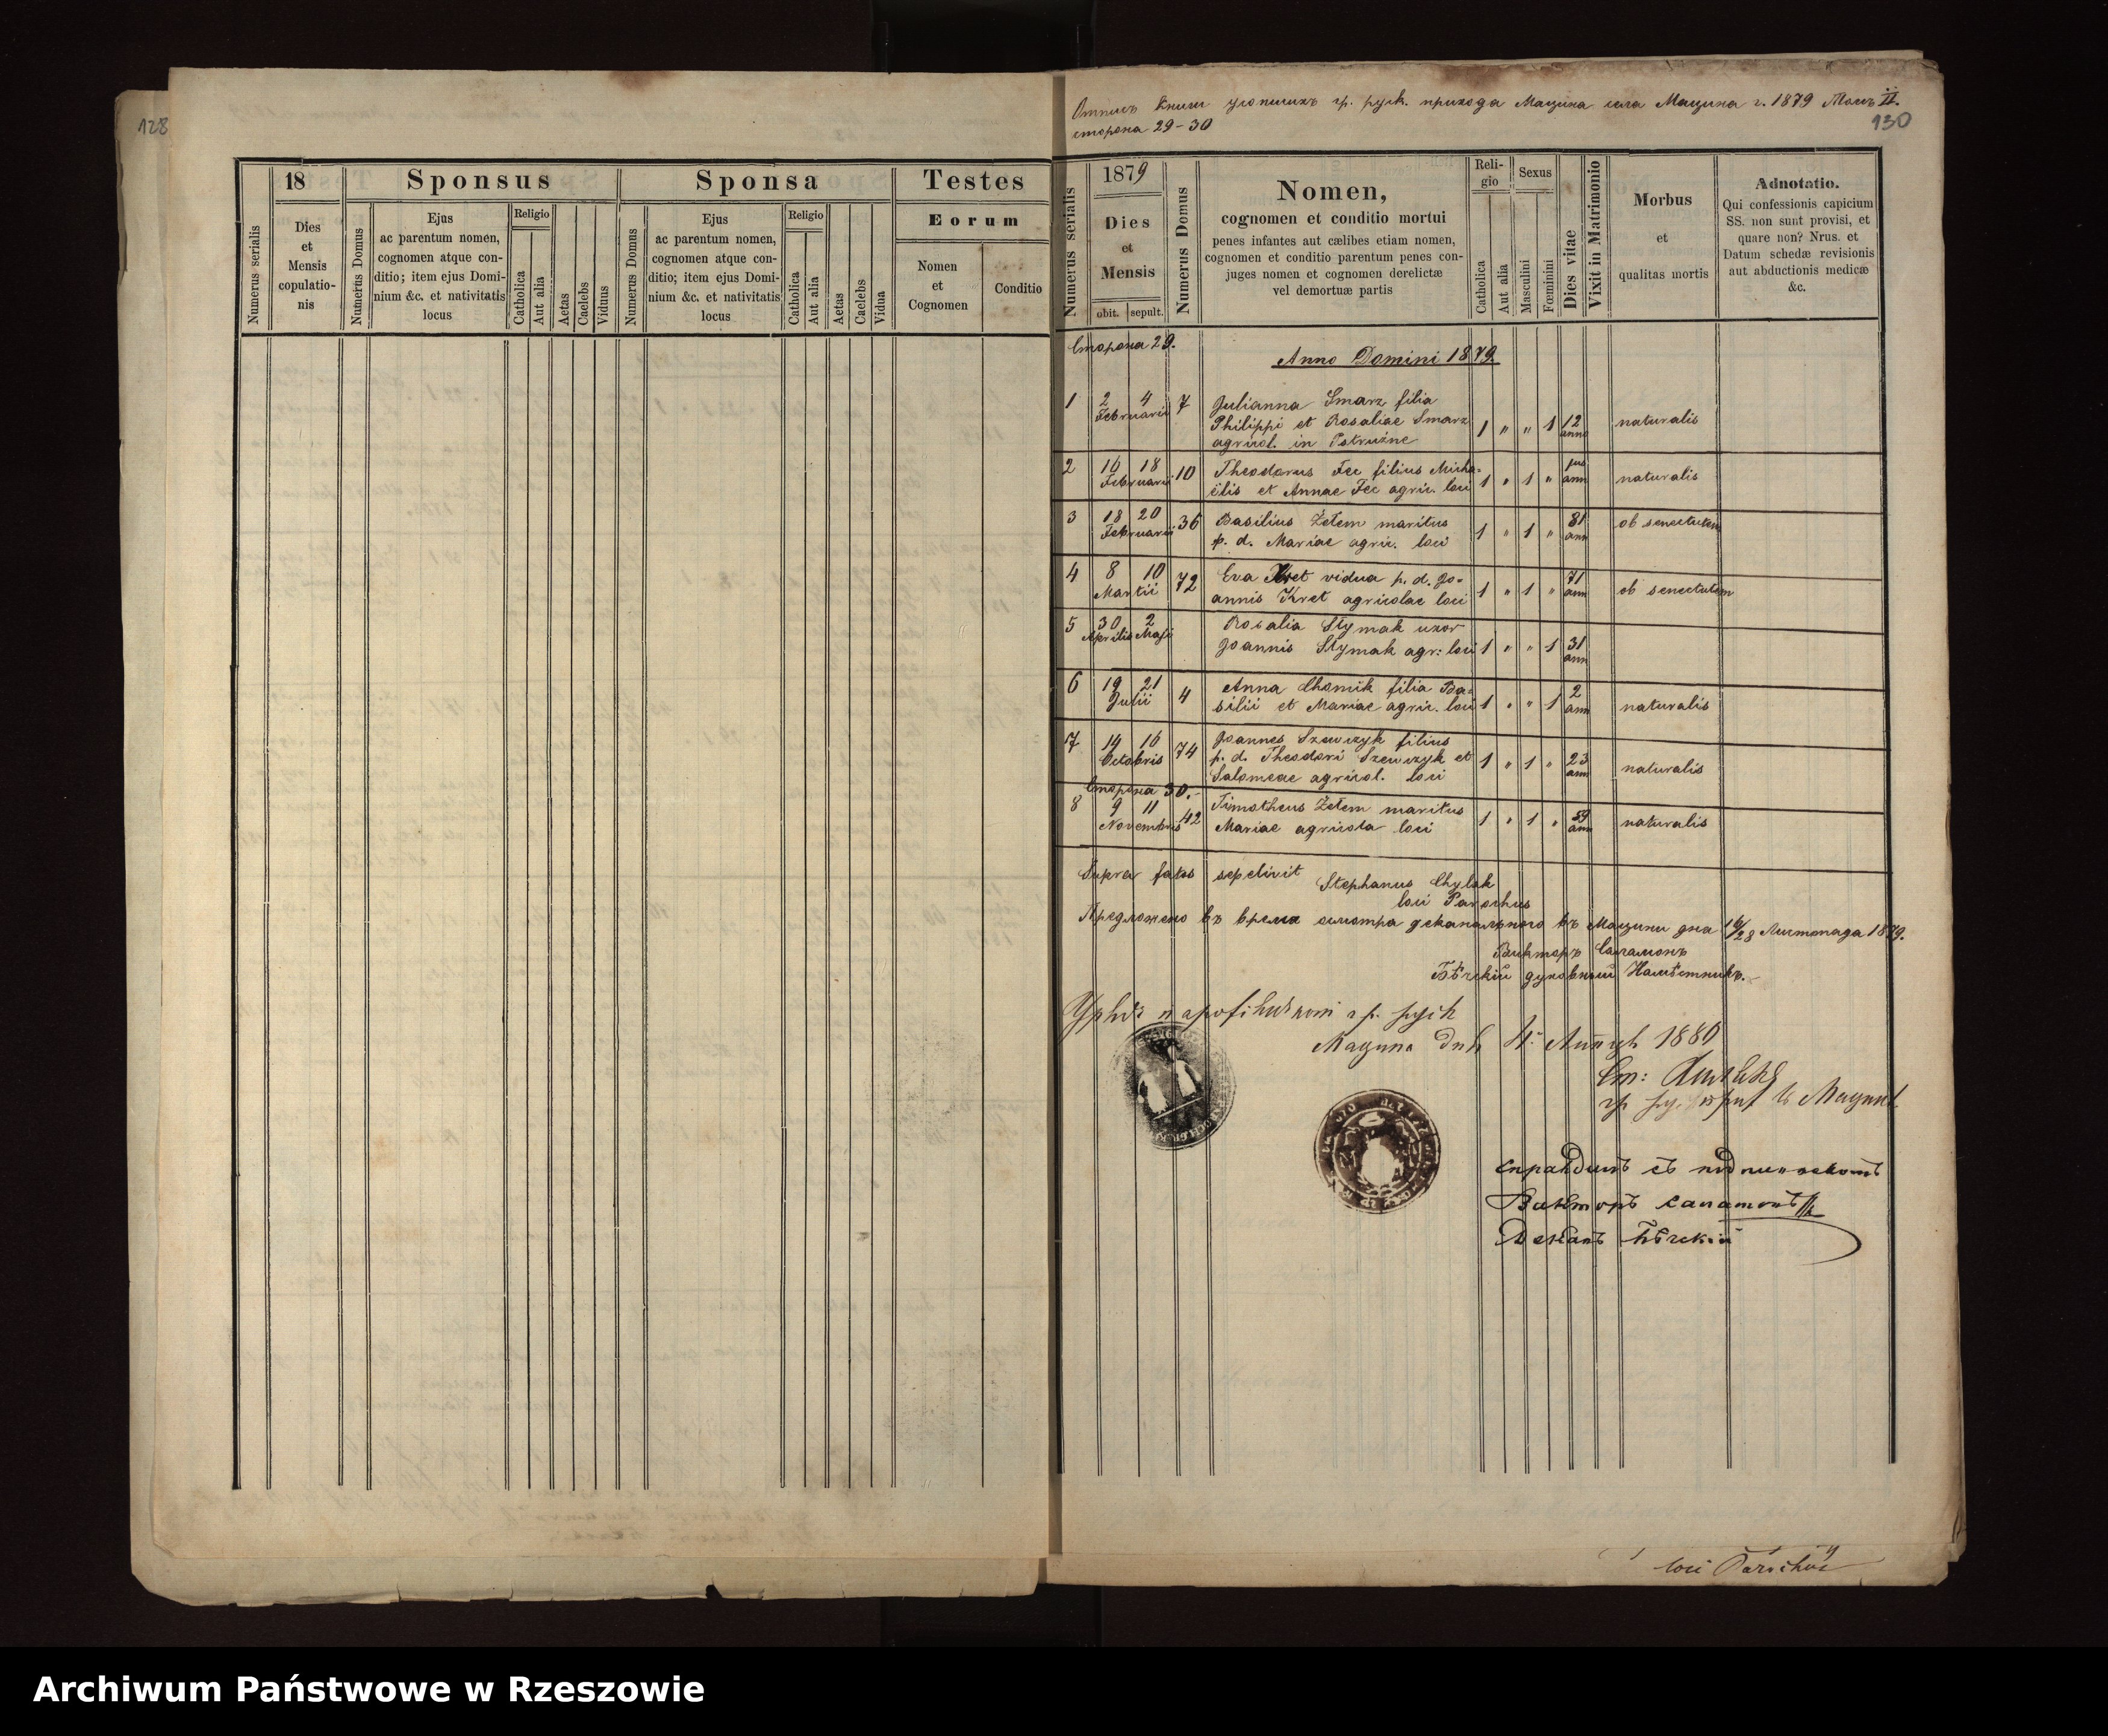 128
18
Sponsus
Sponsa
Testes
Numerus serialis
Dies
et
Mensis
copulatio-
nis
Numerus Domus
Ejus
ac parentum nomen,
cognomen atque con-
ditio; item ejus Domi-
nium &c. et nativitatis
locus
Religio
Catholica
Aut alia
Aetas
Caelebs
Viduus
Numerus Domus
Ejus
ac parentum nomen,
cognomen atque con-
ditio; item ejus Domi-
nium &c. et nativitatis
locus
Religio
Catholica
Aut alia
Aetas
Caelebs
Vidua
Eorum
Nomen
et
Cognomen
Conditio
гр. руск. прихода Мацина села Мацина г. 1879 Томъ II.
сторона 29-30
130
Numerus serialis
1879
Dies
et
Mensis
obit. sepult.
Numerus Domus
Nomen,
cognomen et conditio mortui
penes infantes aut cælibes etiam nomen,
cognomen et conditio parentum penes con-
juges nomen et cognomen derelictæ
vel demortuæ partis
Reli-
gio
Catholica
Aut alia
Sexus
Masculini
Fœminini
Dies vitae
Vixit in Matrimonio
Morbus
et
qualitas mortis
Adnotatio.
Qui confessionis capicium
SS. non sunt provisi, et
quare non? Nrus. et
Datum schedæ revisionis
aut abductionis medicæ
&c.
Сторона 29.
Anno Domini 1879.
1 2 4 7 Julianna Smarz filia
Februarii Philippi et Rosaliae Smarz 1 " " 1 12 naturalis
agricol. in Pstrużne anno
2 16 18 10 Theodorus Fec filius Micha-
Februarii ëlis et Annae Fec agric. loci 1 " 1 " ann naturalis
3 18 20 36 Basilius Żełem maritus 81 ob senectutem
Februarii p. d. Mariae agric. loci 1 " 1 " ann
4 8 10 72 Eva Kret vidua p. d. Jo- 71
Martii annis Kret agricolae loci 1 " 1 " ann ob senectutem
5 30 2 Rosalia Stymak uxor
Aprilis Maji Joannis Stymak agr: loci 1 " " 1 31
ann
6 19 21 4 Anna Chomik filia Ba- 2
Julii silii et Mariae agric. loci 1 " " 1 ann naturalis
7 14 16 74 Joannes Szewczyk filius
Octobris p. d. Theodori Szewczyk et 1 " 1 " 23 naturalis
Salomeae agricol. loci ann
Сторона 30.
8 9 11 42 Timotheus Żełem maritus 59
Novembris Mariae agricola loci 1 " 1 " ann naturalis
Supra fatos sepelivit Stephanus Chylak
loci Parochus
Предложено въ время осмотра деканального въ Мацини дна 16/28 Листопада 1879.
Викторъ Саламонъ
Бѣчскій духовный Намѣстникъ.
гр. руск
Мацина 4. 1880
Ст:
Викторъ Саламонъ
Деканъ Бѣчскій
loci Parochus
Archiwum Państwowe w Rzeszowie